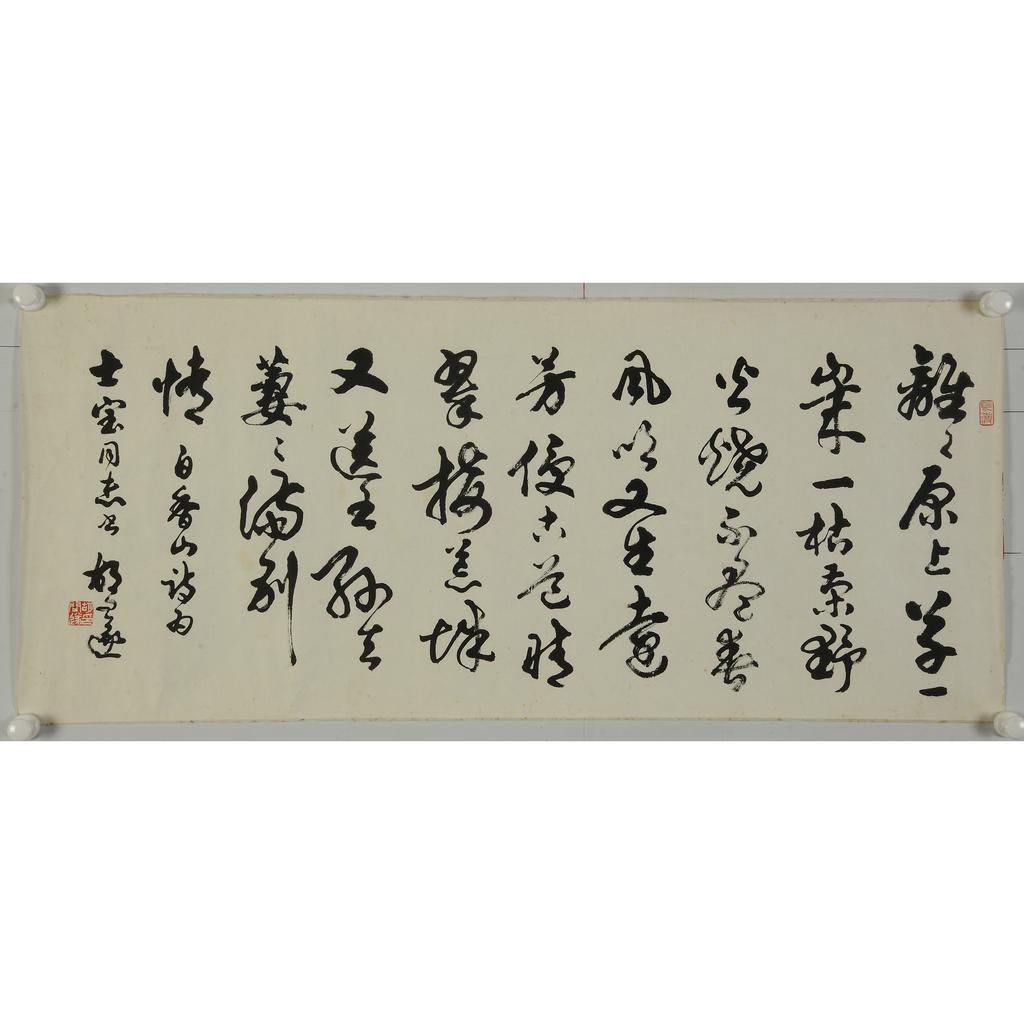 離々原上草一
歲一枯榮野
火燒不盡春
風吹又生遠
芳侵古道晴
翠接荒城
又送王孫去
萋々滿別
情 白香山詩為
士宝同志书 胡问遂